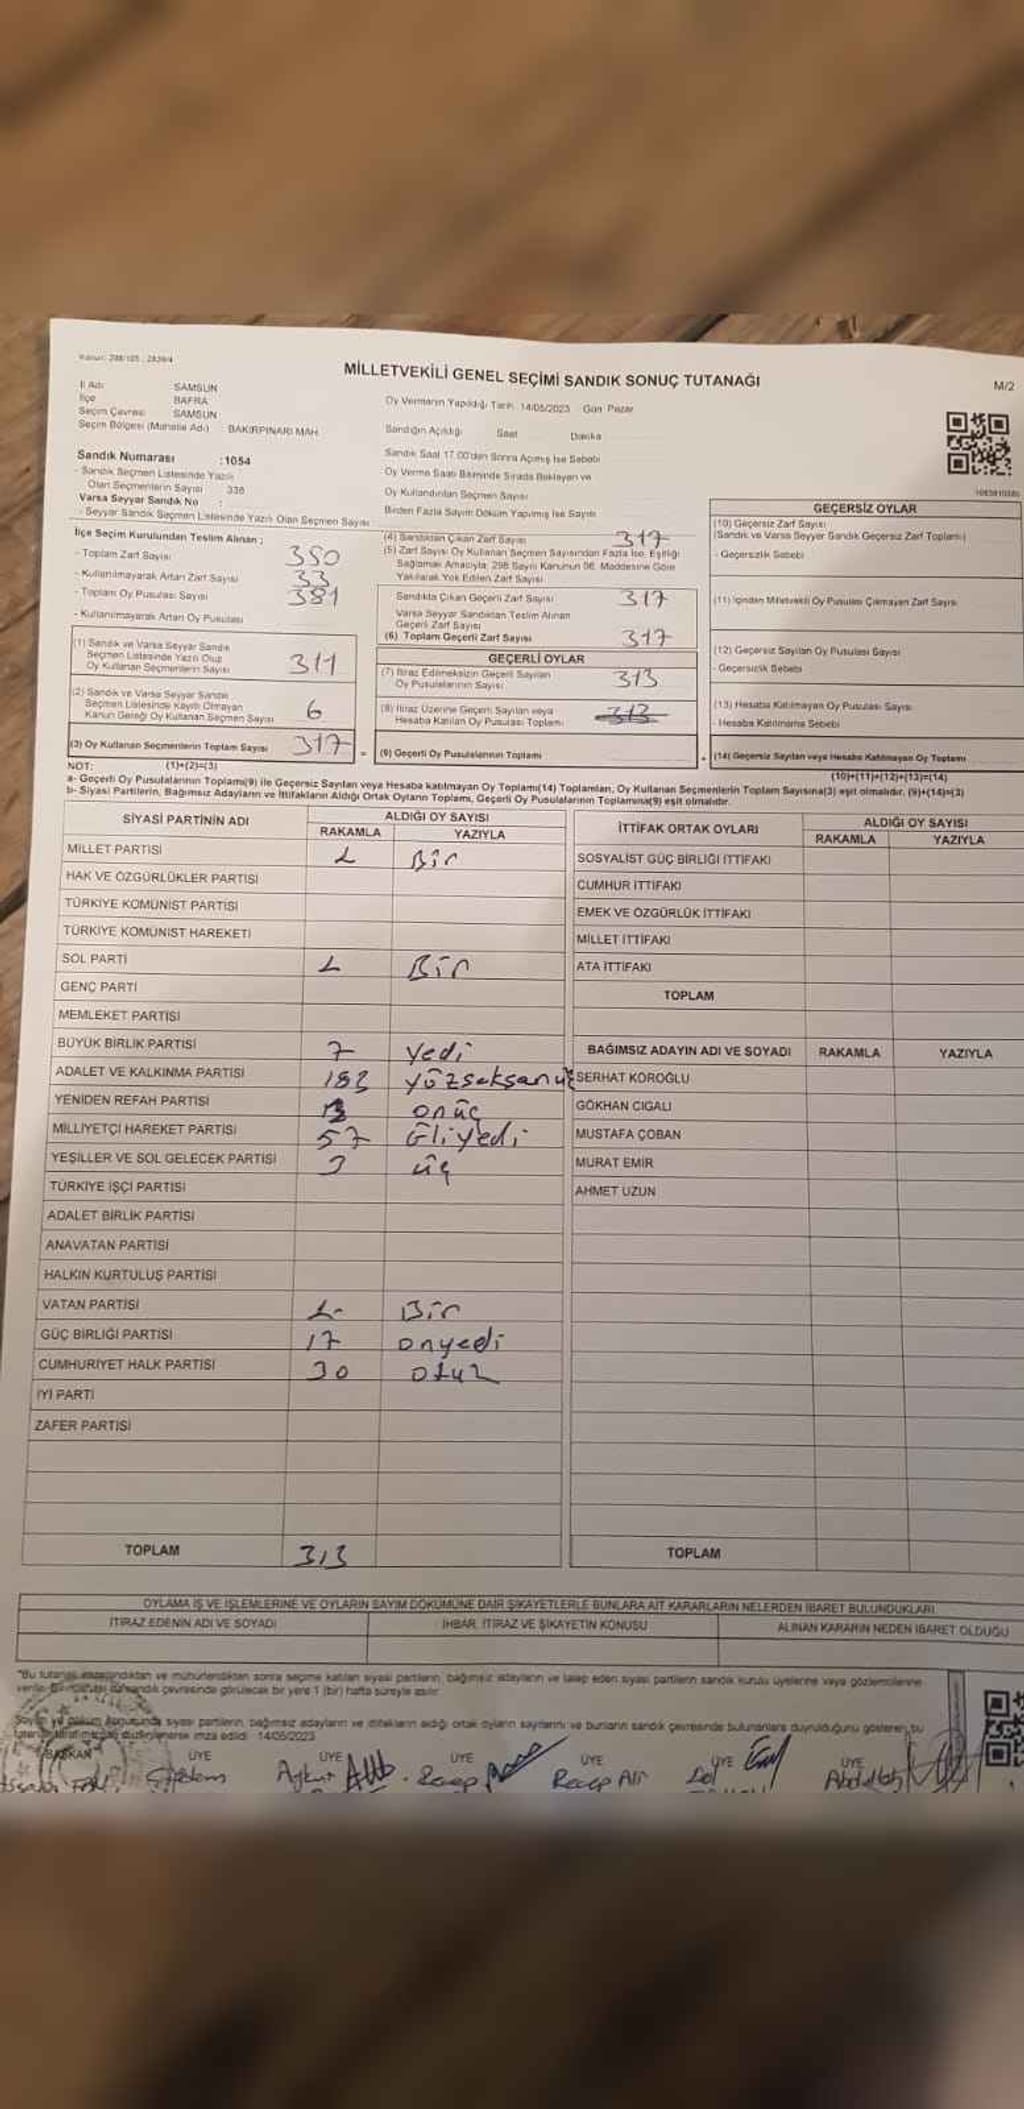 Kanun: 298/105 ; 2839/4
MİLLETVEKİLİ GENEL SEÇİMİ SANDIK SONUÇ TUTANAĞI
M/2
İl Adı SAMSUN
İlçe BAFRA
Seçim Çevresi SAMSUN
Seçim Bölgesi (Mahalle Adı) BAKIRPINARI MAH.
Oy Vermenin Yapıldığı Tarih: 14/05/2023 Gün Pazar
Sandığın Açıldığı Saat Dakika
Sandık Saat 17.00'den Sonra Açılmış İse Sebebi
Oy Verme Saati Bitiminde Sırada Bekleyen ve
Oy Kullandırılan Seçmen Sayısı
Birden Fazla Sayım Döküm Yapılmış İse Sayısı
Sandık Numarası :1054
- Sandık Seçmen Listesinde Yazılı
Olan Seçmenlerin Sayısı 336
Varsa Seyyar Sandık No :
- Seyyar Sandık Seçmen Listesinde Yazılı Olan Seçmen Sayısı
İlçe Seçim Kurulundan Teslim Alınan ;
- Toplam Zarf Sayısı 350
- Kullanılmayarak Artan Zarf Sayısı 33
- Toplam Oy Pusulası Sayısı 381
- Kullanılmayarak Artan Oy Pusulası
(1) Sandık ve Varsa Seyyar Sandık
Seçmen Listesinde Yazılı Olup
Oy Kullanan Seçmenlerin Sayısı 311
(2) Sandık ve Varsa Seyyar Sandık
Seçmen Listesinde Kayıtlı Olmayan
Kanun Gereği Oy Kullanan Seçmen Sayısı 6
(3) Oy Kullanan Seçmenlerin Toplam Sayısı 317 =
(4) Sandıktan Çıkan Zarf Sayısı 317
(5) Zarf Sayısı Oy Kullanan Seçmen Sayısından Fazla İse, Eşitliği
Sağlamak Amacıyla, 298 Sayılı Kanunun 98. Maddesine Göre
Yakılarak Yok Edilen Zarf Sayısı
Sandıkta Çıkan Geçerli Zarf Sayısı 317
Varsa Seyyar Sandıktan Teslim Alınan
Geçerli Zarf Sayısı
(6) Toplam Geçerli Zarf Sayısı 317
GEÇERLİ OYLAR
(7) İtiraz Edilmeksizin Geçerli Sayılan
Oy Pusulalarının Sayısı 313
(8) İtiraz Üzerine Geçerli Sayılan veya
Hesaba Katılan Oy Pusulası Toplamı 313
(9) Geçerli Oy Pusulalarının Toplamı
GEÇERSİZ OYLAR
(10) Geçersiz Zarf Sayısı
(Sandık ve Varsa Seyyar Sandık Geçersiz Zarf Toplamı)
- Geçersizlik Sebebi
(11) İçinden Milletvekili Oy Pusulası Çıkmayan Zarf Sayısı
(12) Geçersiz Sayılan Oy Pusulası Sayısı
- Geçersizlik Sebebi
(13) Hesaba Katılmayan Oy Pusulası Sayısı
- Hesaba Katılmama Sebebi
(14) Geçersiz Sayılan veya Hesaba Katılmayan Oy Toplamı
NOT: (1)+(2)=(3)
(10)+(11)+(12)+(13)=(14)
a- Geçerli Oy Pusulalarının Toplamı(9) ile Geçersiz Sayılan veya Hesaba katılmayan Oy Toplamı(14) Toplamları, Oy Kullanan Seçmenlerin Toplam Sayısına(3) eşit olmalıdır. (9)+(14)=(3)
b- Siyasi Partilerin, Bağımsız Adayların ve İttifakların Aldığı Ortak Oyların Toplamı, Geçerli Oy Pusulalarının Toplamına(9) eşit olmalıdır.
SİYASİ PARTİNİN ADI ALDIĞI OY SAYISI
RAKAMLA YAZIYLA
MİLLET PARTİSİ 1 Bir
HAK VE ÖZGÜRLÜKLER PARTİSİ
TÜRKİYE KOMÜNİST PARTİSİ
TÜRKİYE KOMÜNİST HAREKETİ
SOL PARTİ 1 Bir
GENÇ PARTİ
MEMLEKET PARTİSİ
BÜYÜK BİRLİK PARTİSİ 7 yedi
ADALET VE KALKINMA PARTİSİ 183 yüzseksanüç
YENİDEN REFAH PARTİSİ 13 onüç
MİLLİYETÇİ HAREKET PARTİSİ 57 Elliyedi
YEŞİLLER VE SOL GELECEK PARTİSİ 3 üç
TÜRKİYE İŞÇİ PARTİSİ
ADALET BİRLİK PARTİSİ
ANAVATAN PARTİSİ
HALKIN KURTULUŞ PARTİSİ
VATAN PARTİSİ 1 Bir
GÜÇ BİRLİĞİ PARTİSİ 17 onyedi
CUMHURİYET HALK PARTİSİ 30 otuz
İYİ PARTİ
ZAFER PARTİSİ
TOPLAM 313
İTTİFAK ORTAK OYLARI ALDIĞI OY SAYISI
RAKAMLA YAZIYLA
SOSYALİST GÜÇ BİRLİĞİ İTTİFAKI
CUMHUR İTTİFAKI
EMEK VE ÖZGÜRLÜK İTTİFAKI
MİLLET İTTİFAKI
ATA İTTİFAKI
TOPLAM
BAĞIMSIZ ADAYIN ADI VE SOYADI RAKAMLA YAZIYLA
SERHAT KÖROĞLU
GÖKHAN CIGALI
MUSTAFA ÇOBAN
MURAT EMİR
AHMET UZUN
TOPLAM
OYLAMA İŞ VE İŞLEMLERİNE VE OYLARIN SAYIM DÖKÜMÜNE DAİR ŞİKAYETLERLE BUNLARA AİT KARARLARIN NELERDEN İBARET BULUNDUKLARI
İTİRAZ EDENİN ADI VE SOYADI İHBAR, İTİRAZ VE ŞİKAYETİN KONUSU ALINAN KARARIN NEDEN İBARET OLDUĞU
siyasi partilerin, bağımsız adayların ve ittifakların aldığı ortak oyların sayılarını ve bunların sandık çevresinde bulunanlara duyurulduğunu gösteren bu
imza edildi. 14/05/2023
BAŞKAN ÜYE ÜYE ÜYE ÜYE ÜYE ÜYE
Recep Recep Ali Abdullah